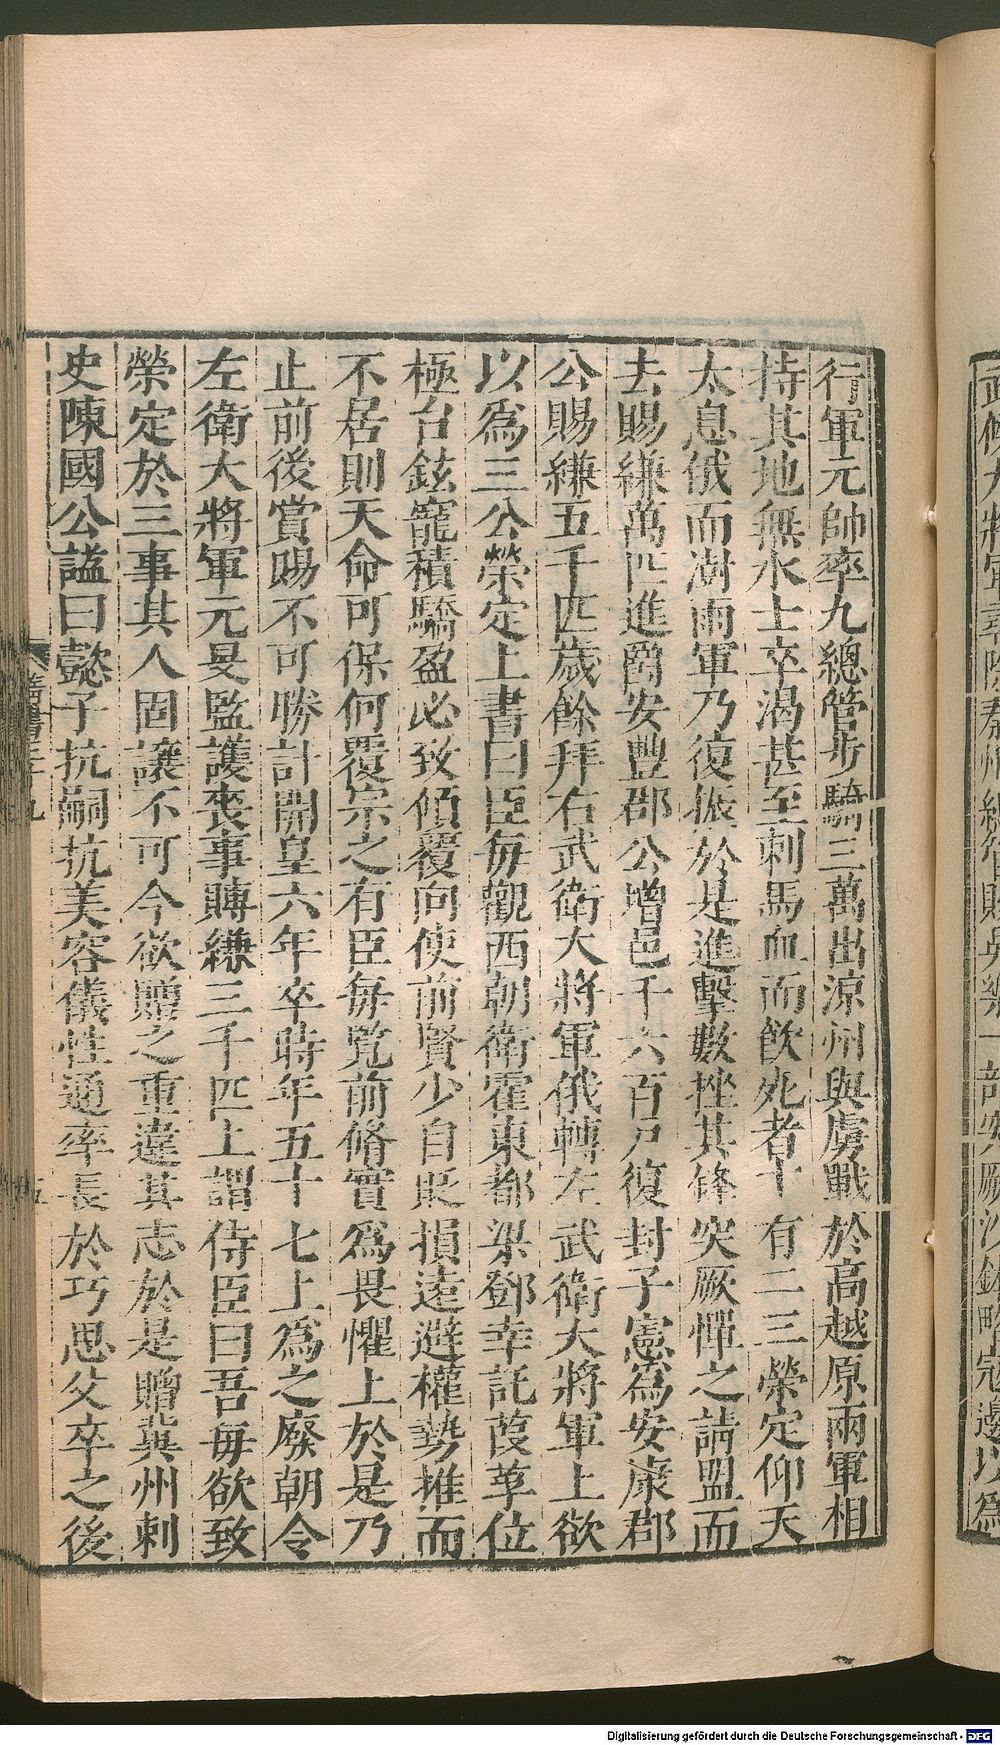 武候大將軍尋除秦州總管賜吳樂一部突厥沙鉢略寇邊以爲
行軍元帥率九總管步騎三萬出涼州與虜戰於高越原兩軍相
持其地無水士卒渴甚至刺馬血而飲死者十有二三榮定仰天
太息俄而澍雨軍乃復振於是進擊數挫其鋒突厥憚之請盟而
去賜縑萬匹進爵安豐郡公增邑千六百戸復封子憲爲安康郡
公賜縑五千匹歲餘拜右武衛大將軍俄轉左武衛大將軍上欲
以爲三公榮定上書曰臣每觀西朝衛霍東都梁鄧幸託葭莩位
極台鉉寵積驕盈必致傾覆向使前賢少自貶損遠避權勢推而
不居則天命可保何覆宗之有臣每覽前脩實爲畏懼上於是乃
止前後賞賜不可勝計開皇六年卒時年五十七上爲之廢朝令
左衛大將軍元旻監護喪事賻縑三千匹上謂侍臣曰吾每欲致
榮定於三事其人固讓不可今欲贈之重違其志於是贈冀州刺
史陳國公謚曰懿子抗嗣抗美容儀性通率長於巧思父卒之後
隋書三十九
五
Digitalisierung gefördert durch die Deutsche Forschungsgemeinschaft - DFG